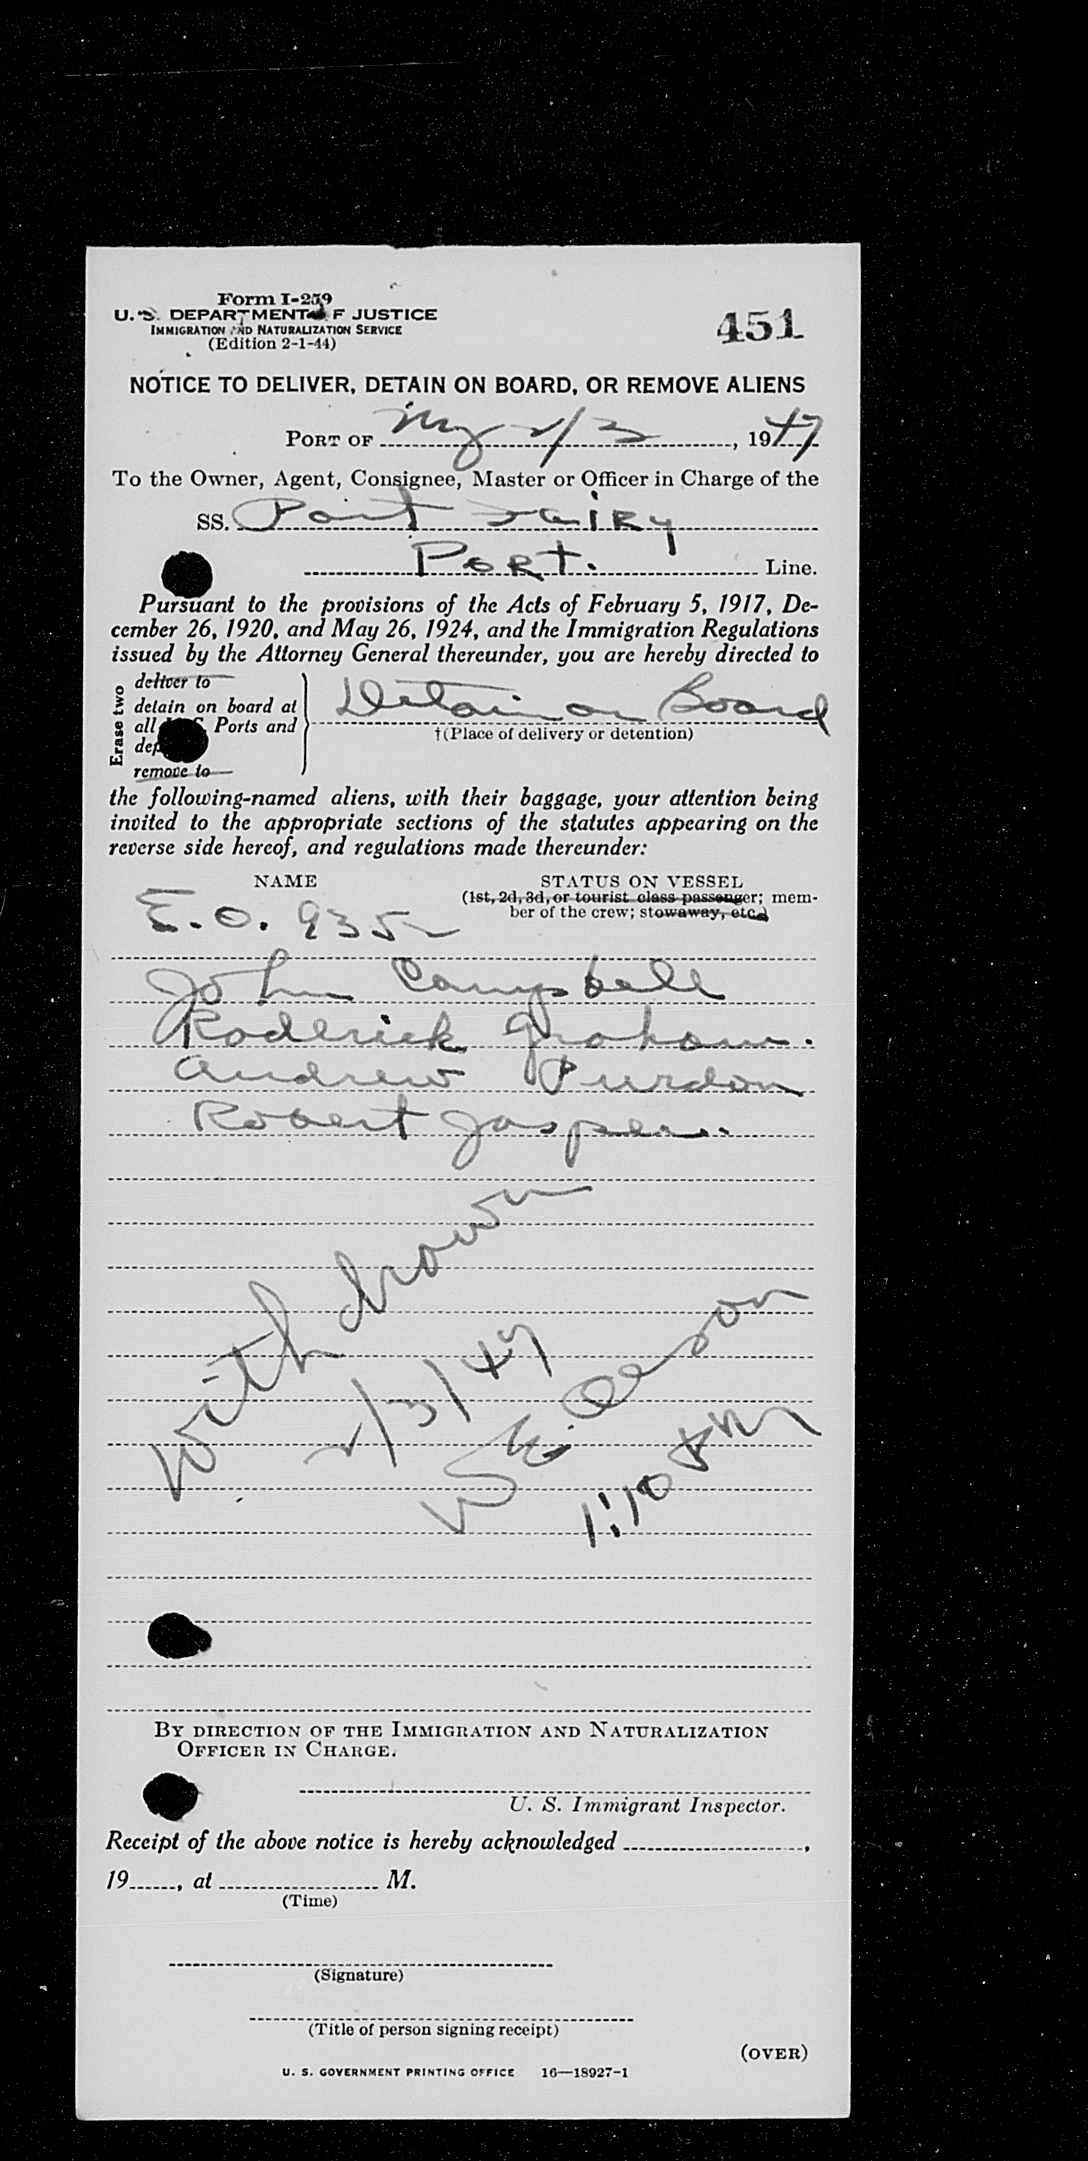 Form I-259
U. S. DEPARTMENT OF JUSTICE
IMMIGRATION AND NATURALIZATION SERVICE
(Edition 2-1-44)
451
NOTICE TO DELIVER, DETAIN ON BOARD, OR REMOVE ALIENS
PORT OF NY 2/3, 1947
To the Owner, Agent, Consignee, Master or Officer in Charge of the
SS. Port Fairy
Port. Line.
Pursuant to the provisions of the Acts of February 5, 1917, De-
cember 26, 1920, and May 26, 1924, and the Immigration Regulations
issued by the Attorney General thereunder, you are hereby directed to
Erase two
deliver to
detain on board at
all U.S. Ports and
dep
remove to
Detain on Board
†(Place of delivery or detention)
the following-named aliens, with their baggage, your attention being
invited to the appropriate sections of the statutes appearing on the
reverse side hereof, and regulations made thereunder:
NAME
STATUS ON VESSEL
(1st, 2d, 3d, or tourist class passenger; mem-
ber of the crew; stowaway, etc.)
E.O. 9352
John Campbell
Roderick Graham.
Andrew Purdon
Robert Jasper.
Withdrawn
2/3/47
1:10 AM
BY DIRECTION OF THE IMMIGRATION AND NATURALIZATION
OFFICER IN CHARGE.
U. S. Immigrant Inspector.
Receipt of the above notice is hereby acknowledged ,
19 , at M.
(Time)
(Signature)
(Title of person signing receipt)
(OVER)
U. S. GOVERNMENT PRINTING OFFICE 16—18927-1